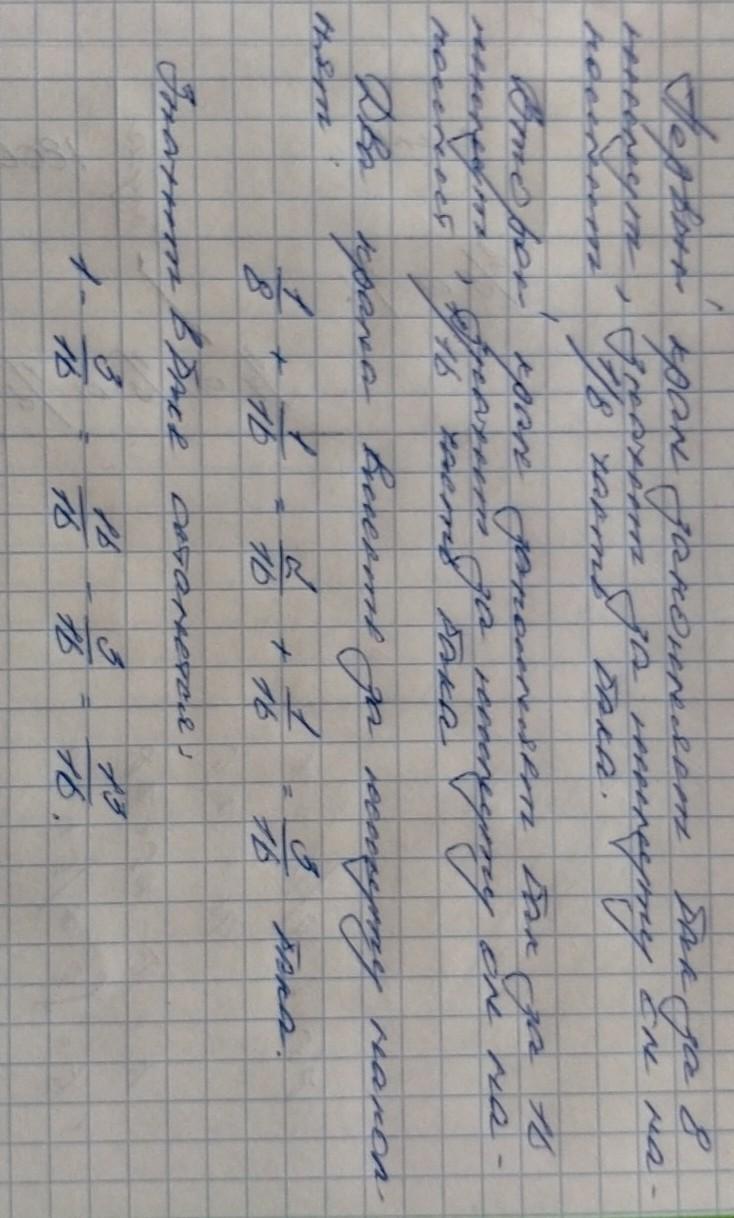 Первый кран заполняет бак за 8
минут, значит за минуту он на-
носит 1/8 часть бака.
Второй кран заполняет бак за 16
минут, значит за минуту он на-
носит 1/16 часть бака
Два крана вместе за минуту напол-
нят:
1/8 + 1/16 = 2/16 + 1/16 = 3/16 бака.
Значит в баке останется:
1 - 3/16 = 16/16 - 3/16 = 13/16.